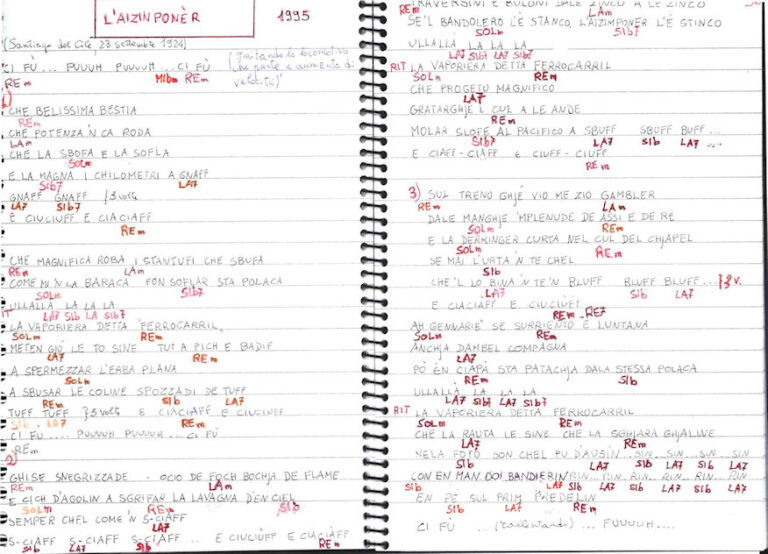 L'AIZINPONÈR 1995
(Santiago del Cile 23 settembre 1924)
CI FÙ... PUUUH PUUUUH ... CI FÙ (imitando la locomotiva
che parte e aumenta di
velocità)
REm MIbm REm
1)
CHE BELISSIMA BESTIA
REm
CHE POTENZA 'N CA RODA
LAm
CHE LA SBOFA E LA SOFLA
SOLm
E LA MAGNA I CHILOMETRI A GNAFF
SIb7 LA7
GNAFF GNAFF }3 volte
LA7 SIb7
E CIUCIUFF E CIACIAFF
REm
CHE MAGNIFICA ROBA I STANTUFI CHE SBUFA
REm LAm
COME MI 'N LA BARACA FON SOFLAR STA POLACA
SOLm SIb7
ULLALLÀ LA LA LA
LA7 SIb LA SIb7
RIT LA VAPORIERA DETTA FERROCARRIL
SOLm REm
METEN GIÓ LE TO SINE TUT A PICH E BADIF
LA7 REm
A SPERMEZZAR L'ERBA PLANA
SOLm
A SBUSAR LE COLINE SPOZZADI DE TUFF
REm SIb LA7
TUFF TUFF }3 volte E CIACIAFF E CIUCIUFF
SIb LA7 REm
CI FÙ .... PUUUUH PUUUUH ... CI FÙ
REm
2)
GHISE SNEGRIZZADE - OCIO DE FOCH BOCHJA DE FLAME
REm LAm
E CICH D'AGOLIN A SGRIFAR LA LAVAGNA D'EN CIEL
SOLm REm SIb
SEMPER CHEL COME 'N S-CIAFF
LA7
S-CIAFF S-CIAFF S-CIAFF ... E CIUCIUFF E CIACIAFF
SIb LA7 SIb LA7 REm
TRAVERSINE E BULONI DALE ZINCO A LE ZINCO
REm LAm
SE'L BANDOLERO L'È STANCO, L'AIZIMPONER L'È STINCO
SOLm SIb7
ULLALLÀ LA LA LA
LA7 SIb7 LA7 SIb7
RIT LA VAPORIERA DETTA FERROCARRIL
SOLm REm
CHE PROGETO MAGNIFICO
LA7
GRATARGHJE L CUL A LE ANDE
REm
MOLAR SLOFE AL PACIFICO A SBUFF SBUFF BUFF ...
SIb7 LA7 SIb LA7 ...
E CIAFF-CIAFF E CIUFF-CIUFF
REm
3) SUL TRENO GHJÈ VIO ME ZIO GAMBLER
REm LAm
DALE MANGHJE 'MPLENUDE DE ASSI E DE RE
SOLm REm
E LA DERRINGER CURTA NEL CUL DEL CHJAPEL
SOLm REm
SE MAI L'URTA 'N TE CHEL
SIb
CHE'L LO BINA 'N TE'N BLUFF BLUFF BLUFF... }3 v.
LA7 SIb LA7
E CIACIAFF E CIUCIUFF
REm RE7
AH GENNARIE' SE SURRIENTO È LUNTANA
SOLm REm
ANCHJA DAMBEL COMPAGNA
LA7
PÒ ÈN CIAPÀ STA PATACHJA DALA STESSA POLACA
REm SIb
ULLALLÀ LA LA LA
LA7 SIb7 LA7 SIb7
RIT LA VAPORIERA DETTA FERROCARRIL
SOLm REm
CHE LA RAUTA LE SINE CHE LA SGHJARA GHJALINE
LA7 REm
NELA FOTO SON CHEL PU D'AUSIN ... SIN ... SIN ... SIN ... SIN
SIb LA7 SIb LA7 SIb LA7
CON EN MAN DOI BANDIERIN RIN... RIN... RIN... RIN... RIN
SIb LA7 SIb LA7 SIb LA7
EN PÈ SUL PRIM PREDELIN
SIb LA7 REm
CI FÙ ...(rallentando).... FUUUUH....